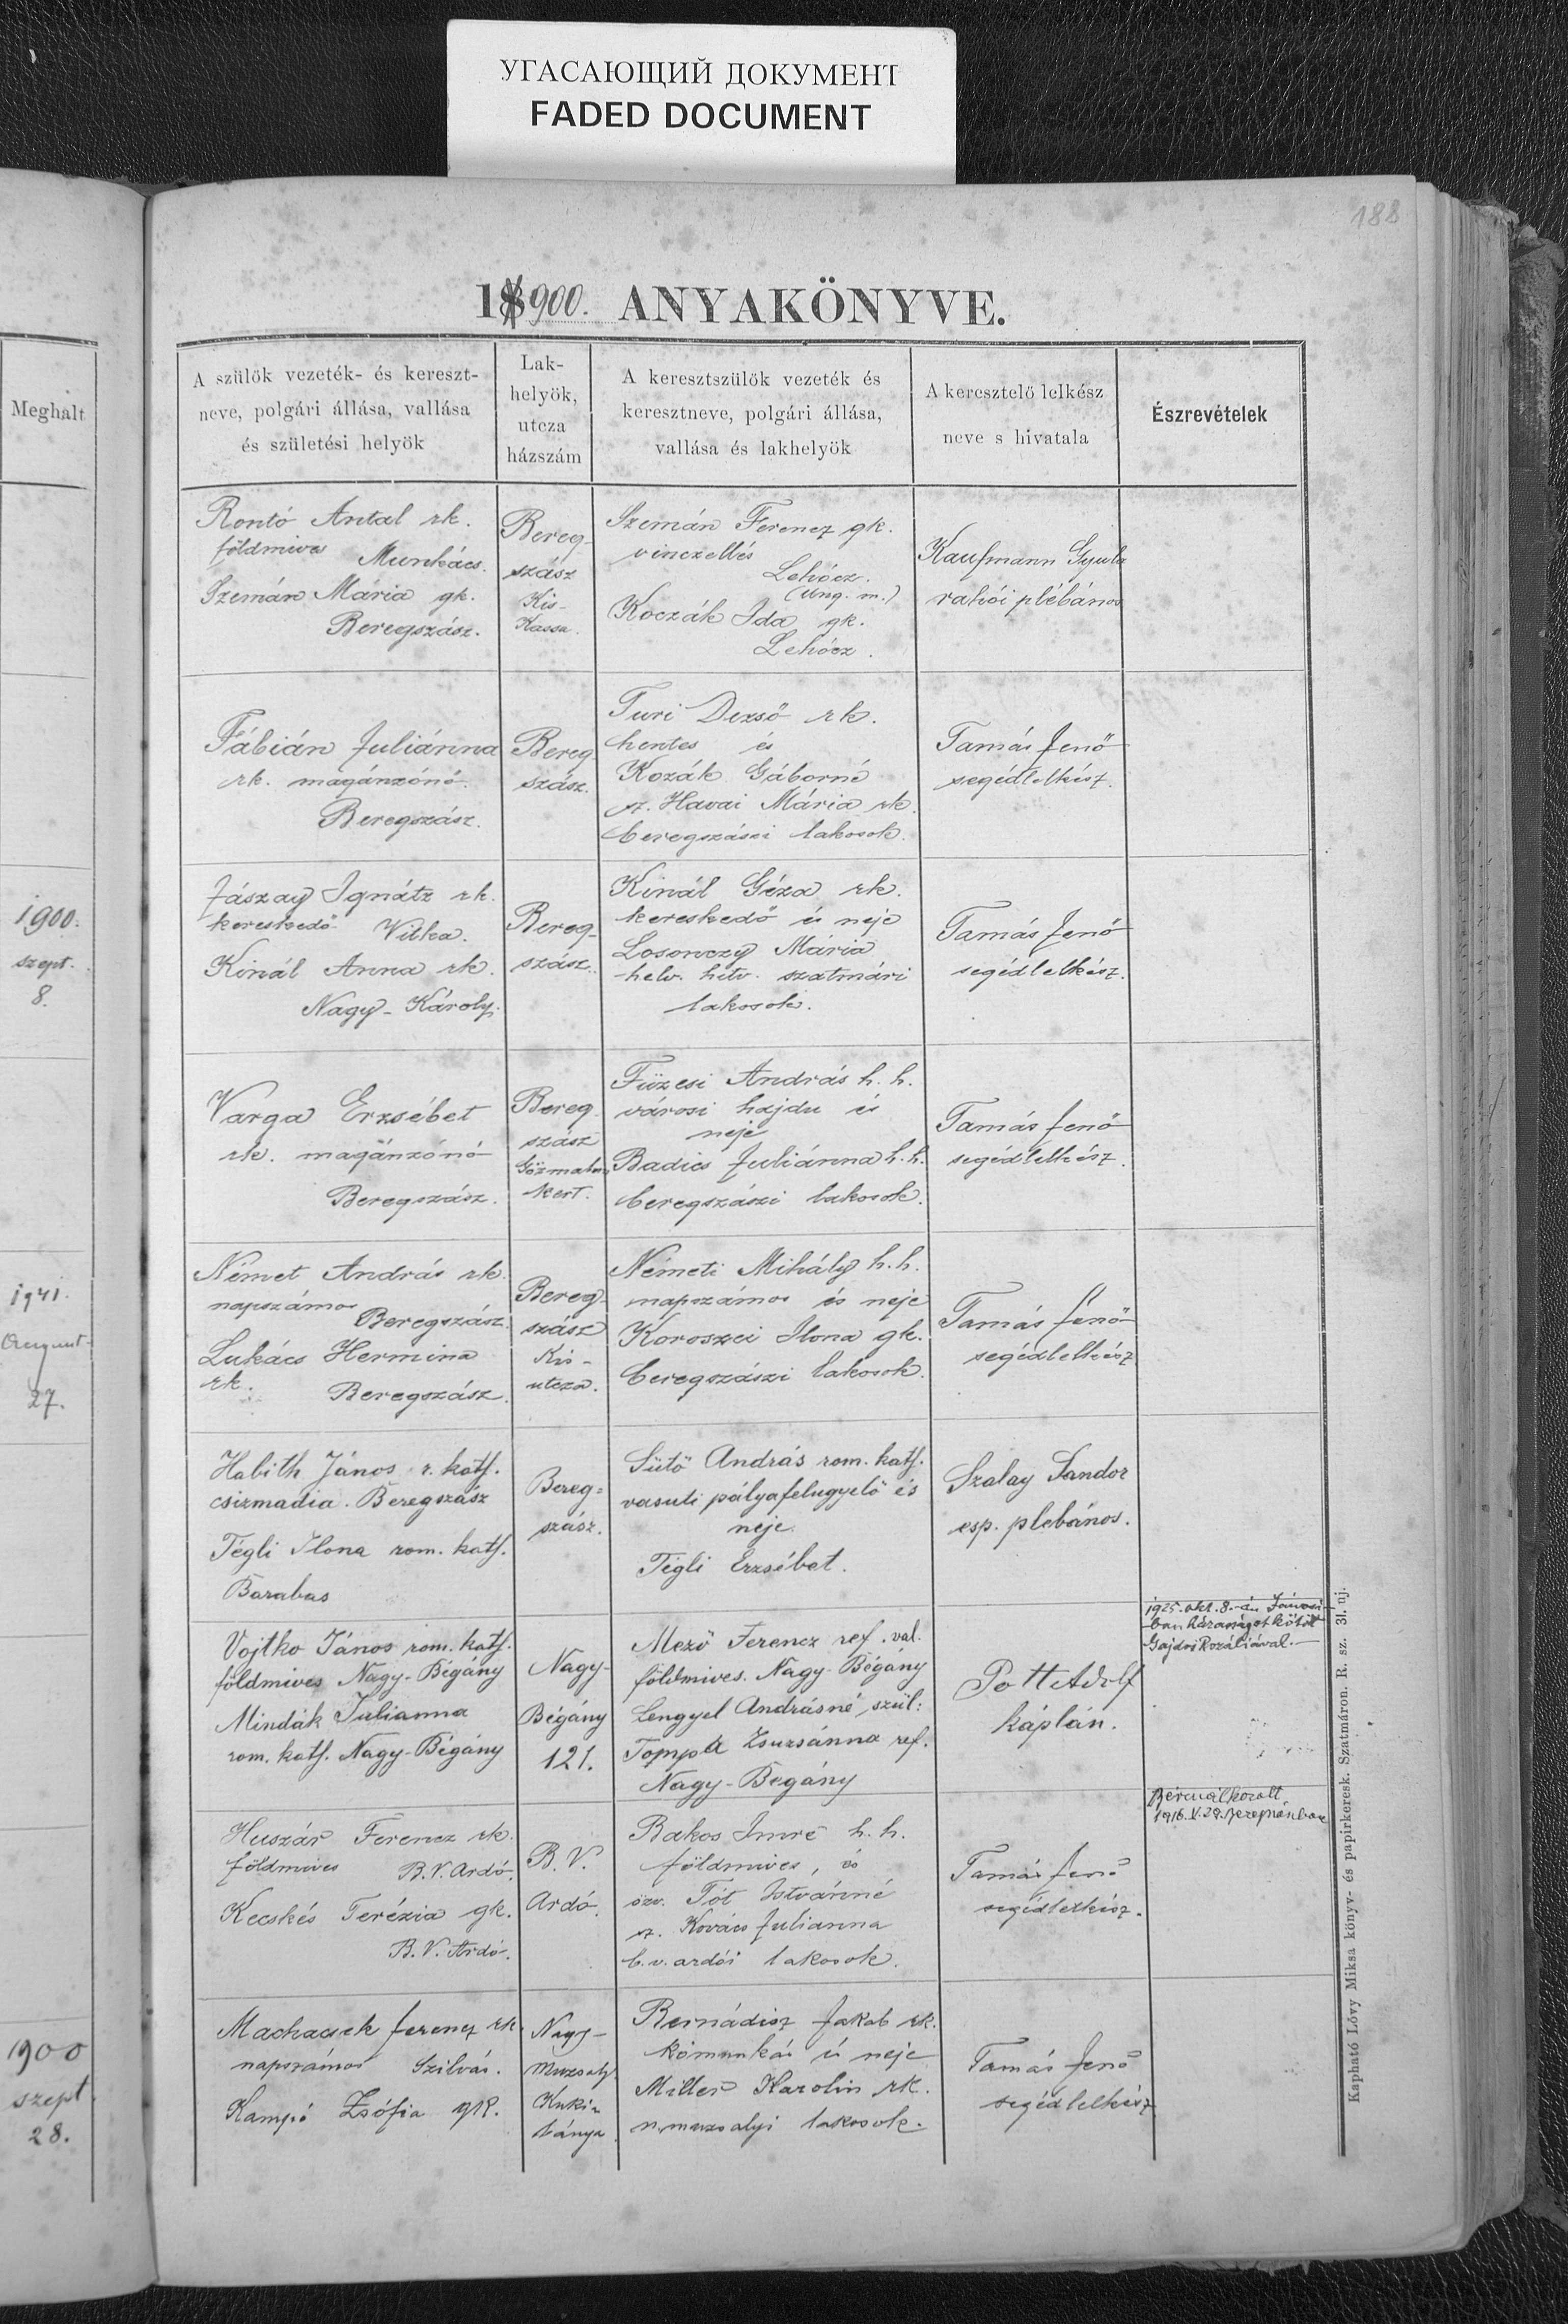 УГАСАЮЩИЙ ДОКУМЕНТ
FADED DOCUMENT
188
18900. ANYAKÖNYVE.
Meghalt
A szülők vezeték- és kereszt-
neve, polgári állása, vallása
és születési helyök
Lak-
helyök,
utcza
házszám
A keresztszülők vezeték és
keresztneve, polgári állása,
vallása és lakhelyök
A keresztelő lelkész
neve s hivatala
Észrevételek
Rontó Antal rk.
földmives
Munkács.
Szemán Mária gk.
Beregszász.
Bereg-
szász
Kis-
Kassa.
Szemán Ferencz gk.
vinczellés
Lehócz.
(Ung. m.)
Koczák Ida gk.
Lehócz.
Kaufmann Gyula
rahói plébános
Fábián Juliánna
rk. magánzónő.
Beregszász.
Bereg
szász.
Turi Dezső rk.
hentes és
Kozák Gáborné
sz. Havai Mária rk.
beregszászi lakosok.
Tamás Jenő
segédlelkész.
1900.
szept.
8.
Jászay Ignátz rk.
kereskedő Vilka.
Kinál Anna rk.
Nagy-Károly.
Bereg-
szász.
Kinál Géza rk.
kereskedő és neje
Losonczy Mária
helv. hitv. szatmári
lakosok.
Tamás Jenő
segédlelkész.
Varga Erzsébet
rk. magánzónő
Beregszász.
Bereg
szász
Gőzmalom
kert.
Füzesi András h. h.
városi hajdu és
neje
Badics Juliánna h. h.
beregszászi lakosok.
Tamás Jenő
segédlelkész.
1941.
August
27.
Német András rk.
napszámos
Beregszász.
Lukács Hermina
rk.
Beregszász.
Bereg-
szász
Kis-
utcza.
Németi Mihály h. h.
napszámos és neje
Koroszei Ilona gk.
beregszászi lakosok.
Tamás Jenő
segédlelkész
Habith János r. kath.
csizmadia. Beregszász
Tégli Ilona rom. kath.
Barabas
Bereg=
szász.
Sütő András rom. kath.
vasuti pályafelugyelő és
neje.
Tégli Erzsébet.
Szalay Sandor
esp. plebános.
Vojtko János rom. kath.
földmives Nagy-Bégány
Mindák Julianna
rom. kath. Nagy-Bégány
Nagy-
Bégány
121.
Mező Ferencz ref. val.
földmives. Nagy-Bégány
Lengyel Andrásné szül:
Tompa Zsuzsánna ref.
Nagy-Begány
Pott Adolf
káplán.
1925. okt. 8.-án Jánosi-
ban házasságot kötött
Gajdos Rozáliával.-
Huszár Ferencz rk.
földmives B.V. Ardó.
Kecskés Terézia gk.
B.V. Ardó.
B.V.
Ardó.
Bakos Imre h. h.
földmives, és
özv. Tót Istvánné
sz. Kovács Julianna
b.v. ardói lakosok.
Tamás Jenő
segédlelkész.
Bérmálkozott
1916. V. 29.
1900
szept.
28.
Machacsek Ferencz rk.
napszámos Szilvás.
Kampó Zsófia gk.
Nagy-
Muzsaly
bánya
Bernádisz Jakab rk.
kőmunkás és neje
Miller Karolin rk.
n. muzsalyi lakosok.
Tamás Jenő
segédlelkész
Kapható Lövy Miksa könyv- és papirkeresk. Szatmáron. R. sz. 31. uj.